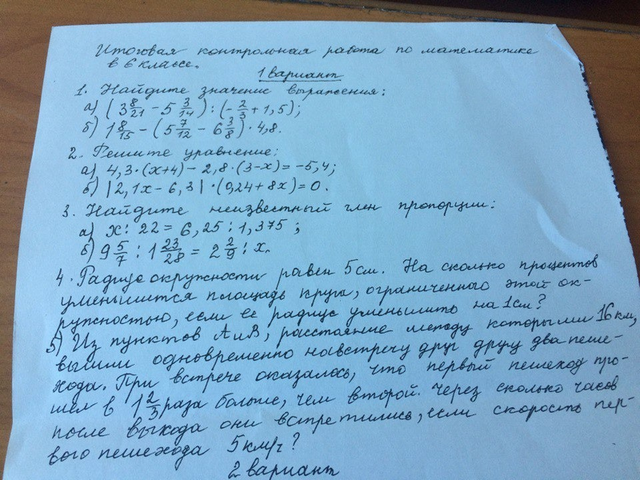 Итоговая контрольная работа по математике
в 6 классе.
1 вариант
1. Найдите значение выражения:
а) (3 8/21 - 5 3/14) : (- 2/3 + 1,5);
б) 1 8/15 - (5 7/12 - 6 3/8) · 4,8.
2. Решите уравнение:
а) 4,3·(x+4) - 2,8·(3-x) = -5,4;
б) |2,1x - 6,3|·(0,24+8x) = 0.
3. Найдите неизвестный член пропорции:
а) x : 22 = 6,25 : 1,375;
б) 9 5/7 : 1 23/28 = 2 2/9 : x.
4. Радиус окружности равен 5 см. На сколько процентов
уменьшится площадь круга, ограниченного этой ок-
ружностью, если ее радиус уменьшить на 1 см?
5) Из пунктов А и В, расстояние между которыми 16 км,
вышли одновременно навстречу друг другу два пеше-
хода. При встрече оказалось, что первый пешеход про-
шел в 1 2/3 раза больше, чем второй. Через сколько часов
после выхода они встретились, если скорость пер-
вого пешехода 5 км/ч?
2 вариант